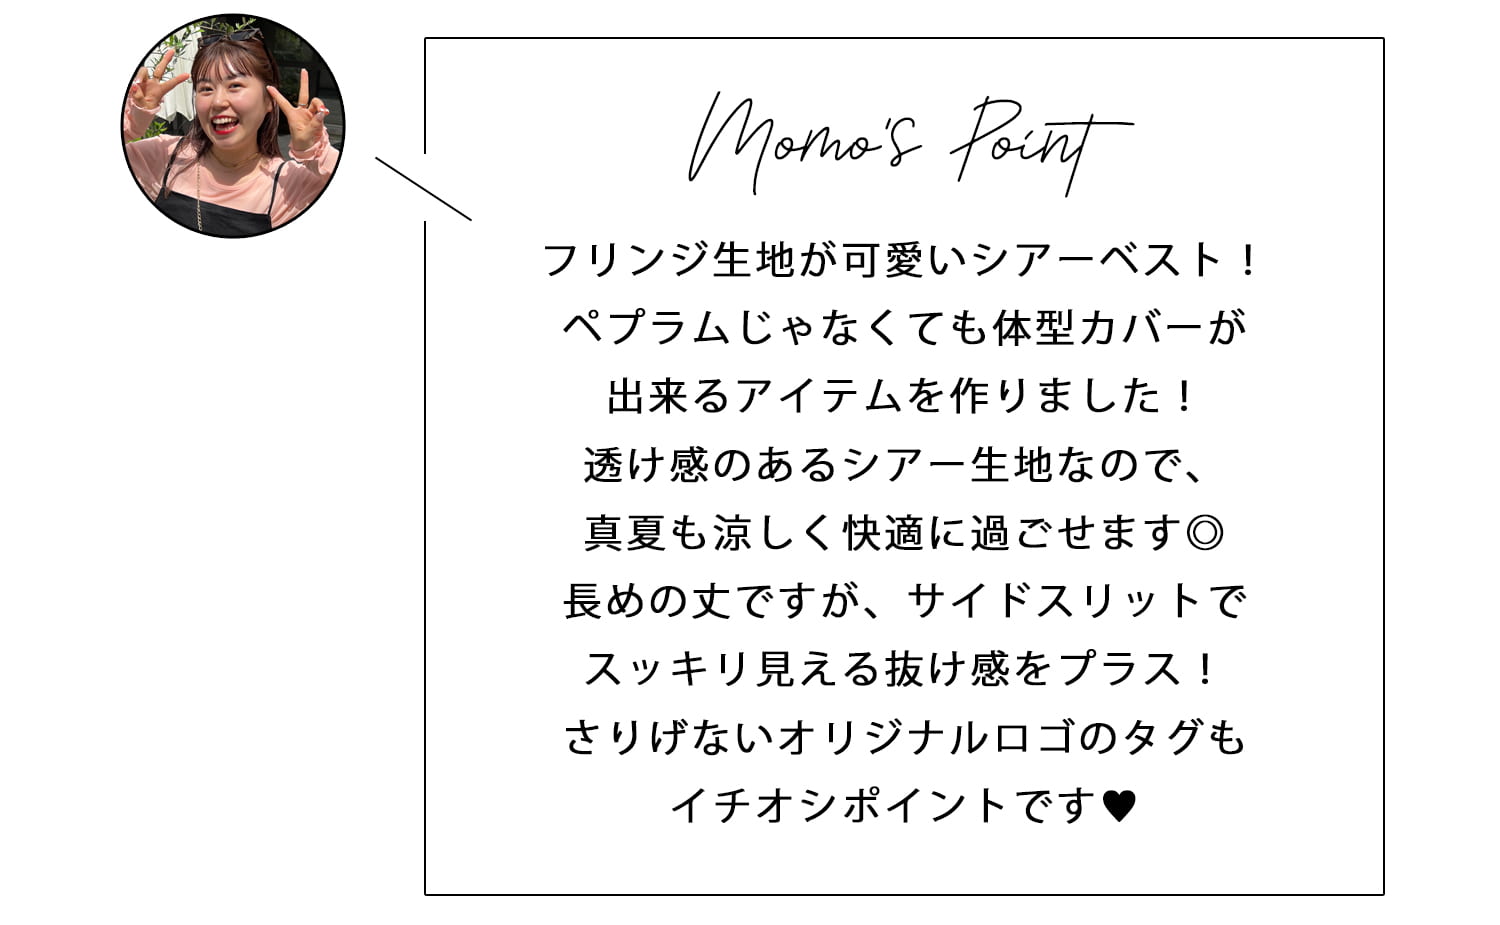 Momo's Point
フリンジ生地が可愛いシアーベスト！
ペプラムじゃなくても体型カバーが
出来るアイテムを作りました！
透け感のあるシアー生地なので、
真夏も涼しく快適に過ごせます◎
長めの丈ですが、サイドスリットで
スッキリ見える抜け感をプラス！
さりげないオリジナルロゴのタグも
イチオシポイントです♥